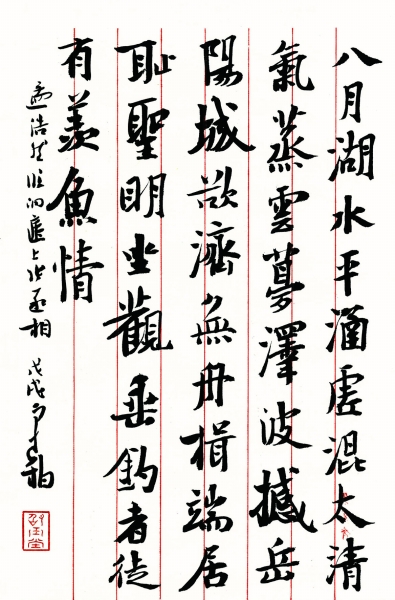 八月湖水平涵虛混太清
氣蒸雲夢澤波撼岳
陽城欲濟無舟楫端居
耻聖明坐觀垂釣者徒
有羨魚情
孟浩然临洞庭上张丞相 戊戌